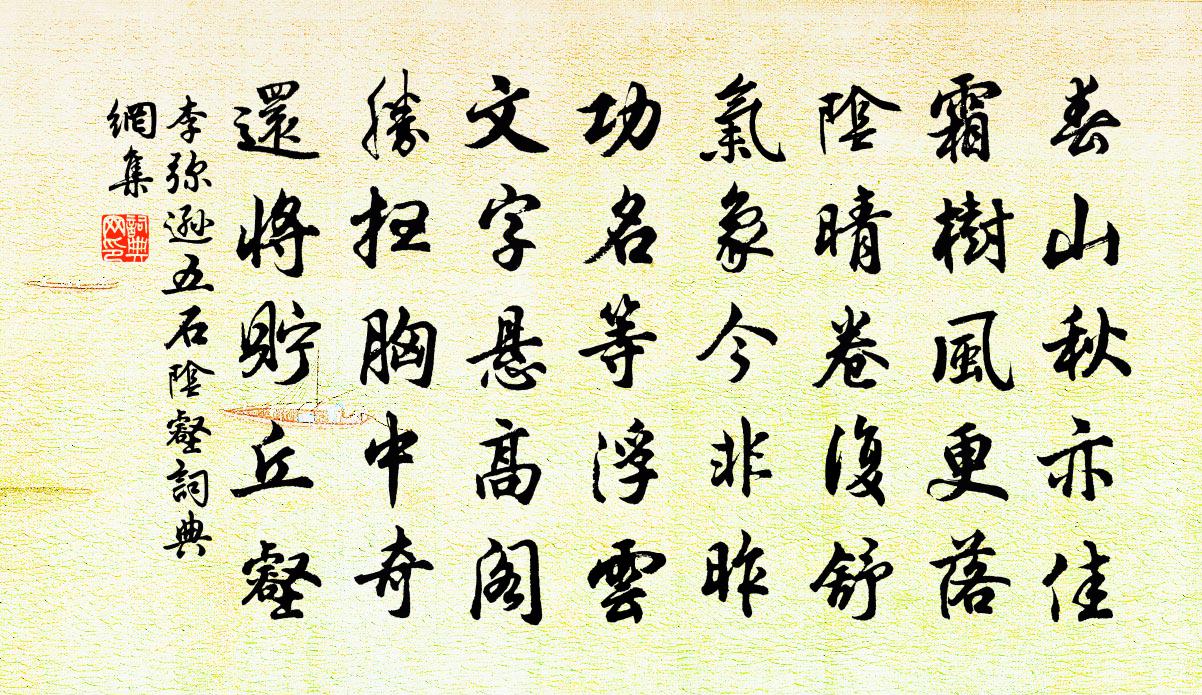 春山秋亦佳
霜樹風更落
陰晴卷復舒
氣象今非昨
功名等浮雲
文字懸高閣
勝抂胸中奇
還將貯丘壑
李弥遜五石陰壑詞典
網集
詞典
網印